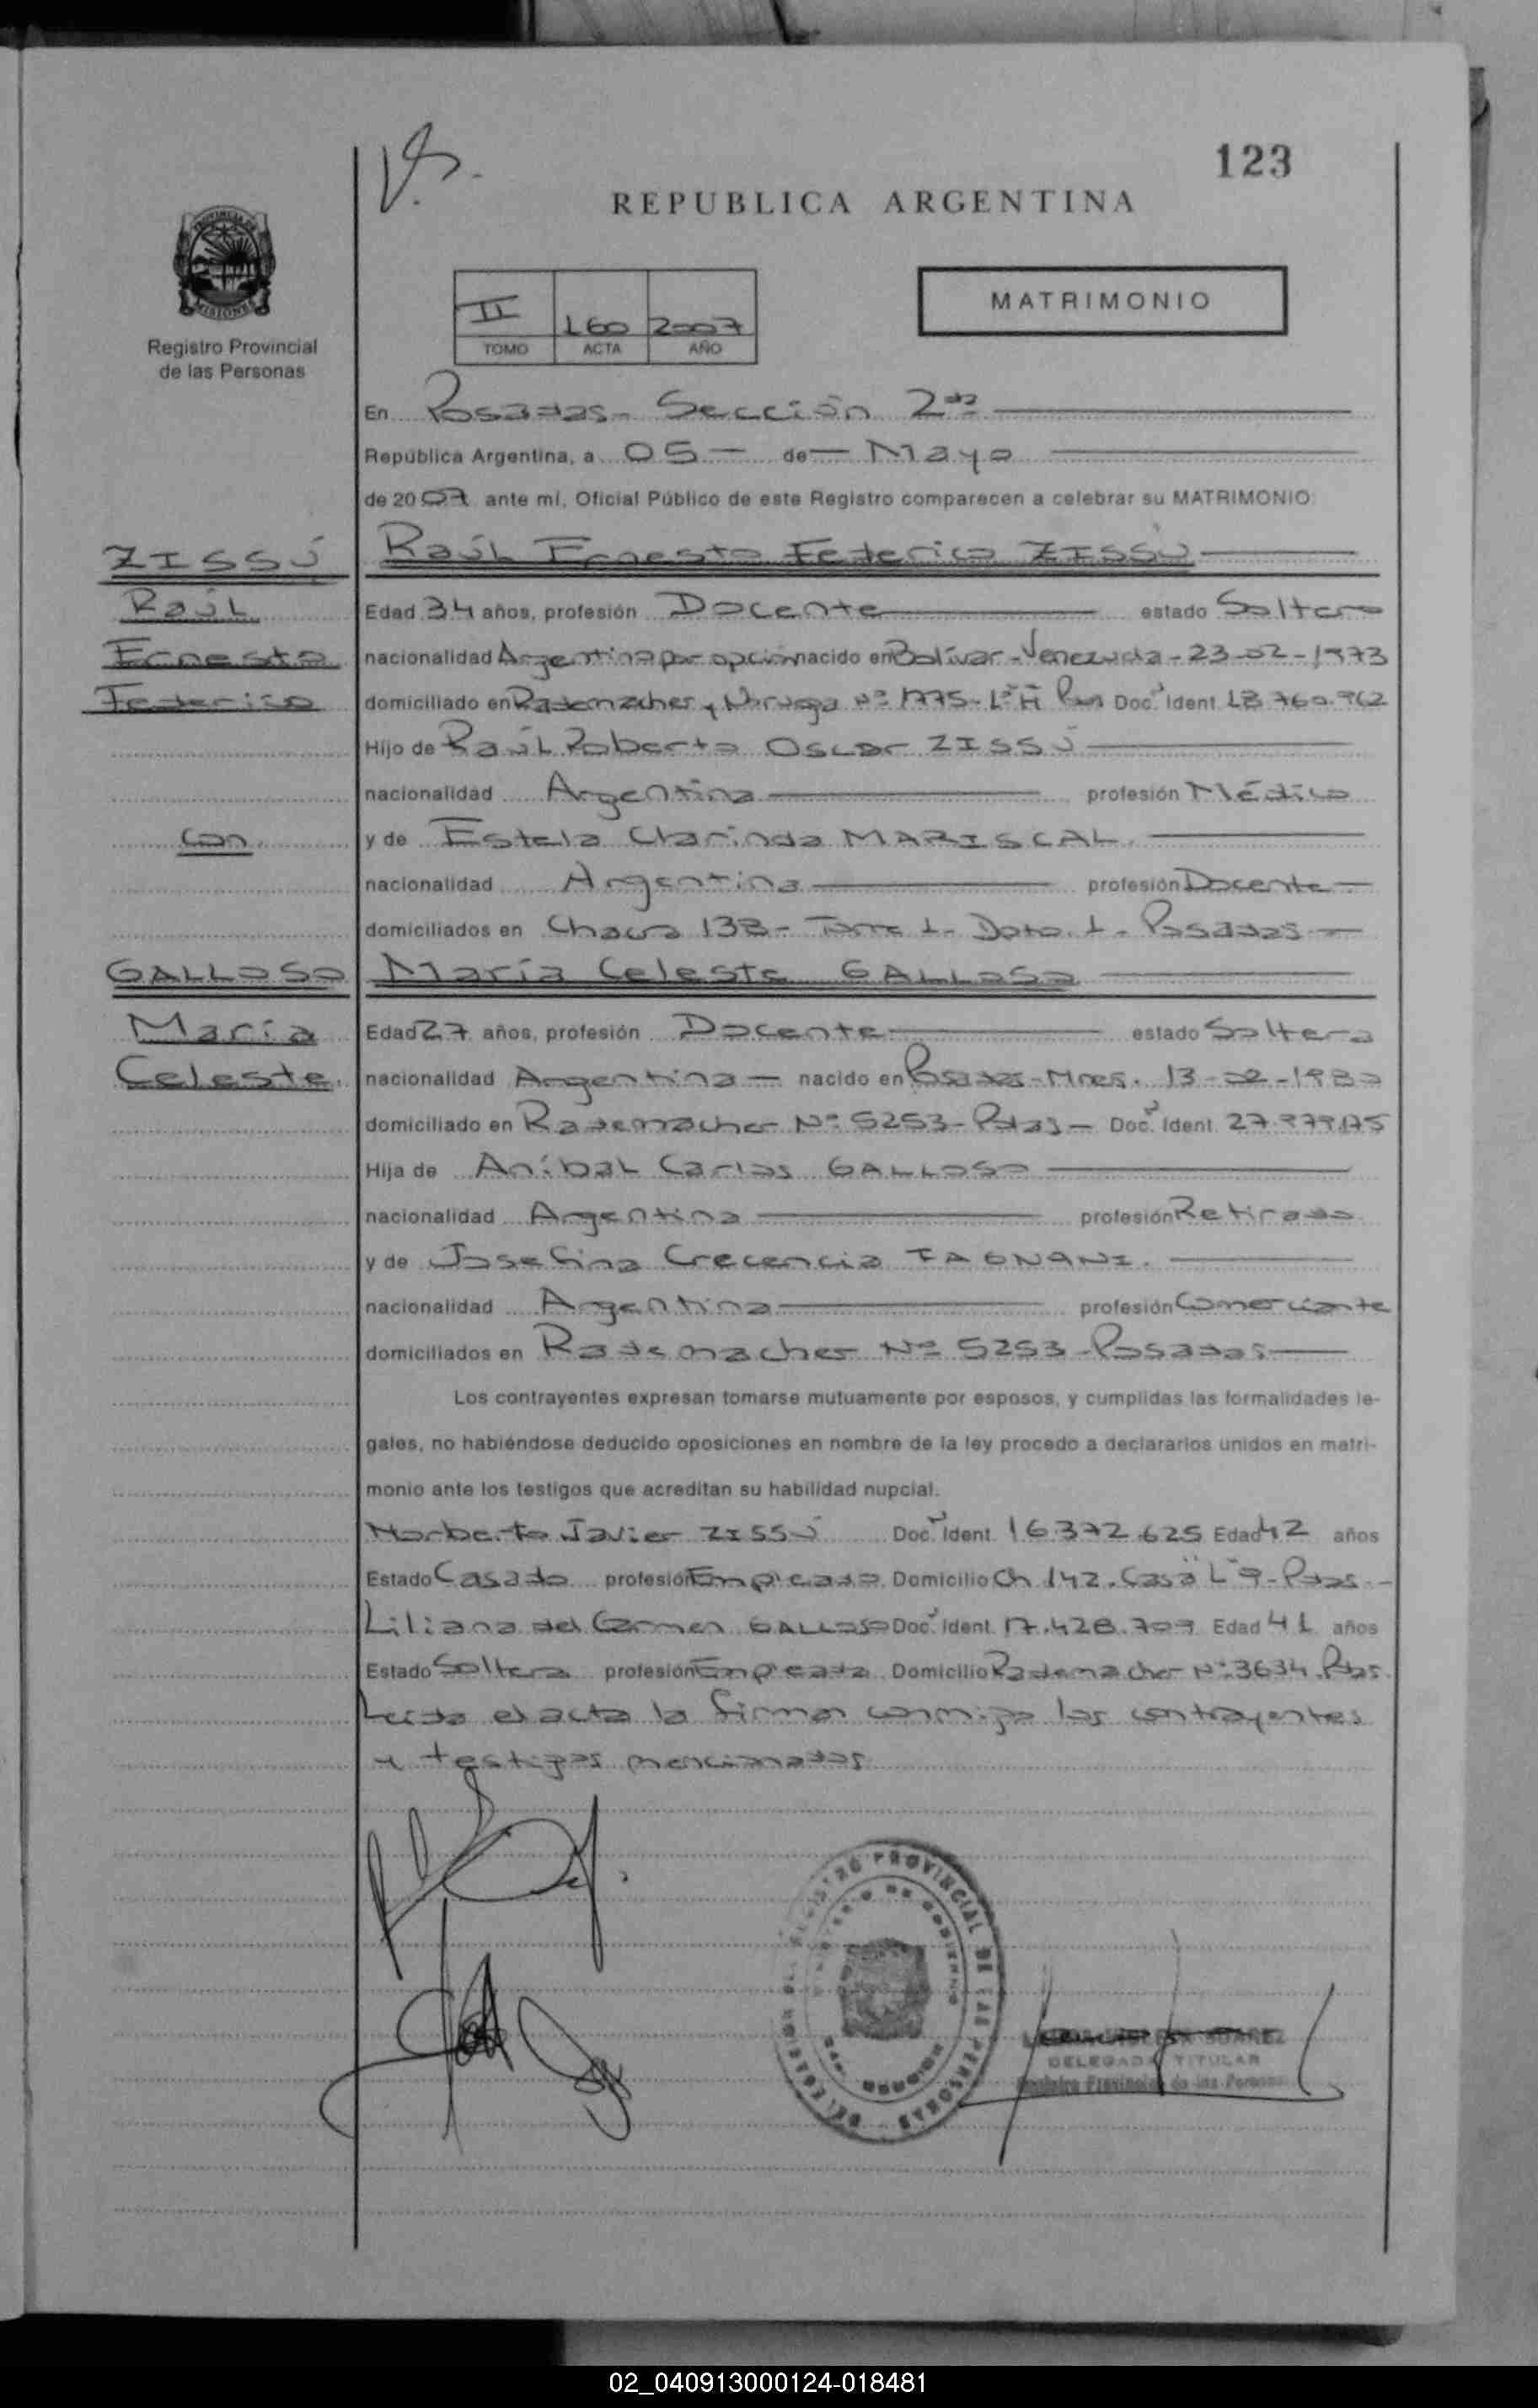 123
REPUBLICA ARGENTINA
PROVINCIA DE
MISIONES
Registro Provincial
de las Personas
II 160 2007
TOMO ACTA AÑO
MATRIMONIO
En Posadas - Sección 2da
República Argentina, a 05 - de - Mayo
de 2007 ante mí, Oficial Público de este Registro comparecen a celebrar su MATRIMONIO:
ZISSÚ Raúl Ernesto Federico ZISSÚ
Raúl Edad 34 años, profesión Docente estado Soltero
Ernesto nacionalidad Argentina por opción nacido en Bolívar - Venezuela - 23-02-1973
Federico domiciliado en Rademacher y Noruega Nº 1775 - Doc. Ident. 18.760.962
Hijo de Raúl Roberto Oscar ZISSÚ
nacionalidad Argentina profesión Médico
con y de Estela Clarinda MARISCAL.
nacionalidad Argentina profesión Docente -
domiciliados en Chacra 138 - Torre 1 - Dpto. 1 - Posadas -
GALLOSO María Celeste GALLOSO
María Edad 27 años, profesión Docente estado Soltera
Celeste. nacionalidad Argentina - nacido en Posadas - Mnes. 13-02-1980
domiciliado en Rademacher Nº 5253 - Pdas - Doc. Ident. 27.979.175
Hija de Aníbal Carlos GALLOSO
nacionalidad Argentina profesión Retirado
y de Josefina Crecencia TAGNANI.
nacionalidad Argentina profesión Comerciante
domiciliados en Rademacher Nº 5253 - Posadas
Los contrayentes expresan tomarse mutuamente por esposos, y cumplidas las formalidades le-
gales, no habiéndose deducido oposiciones en nombre de la ley procedo a declararlos unidos en matri-
monio ante los testigos que acreditan su habilidad nupcial.
Norberto Javier ZISSÚ Doc. Ident. 16.372.625 Edad 42 años
Estado Casado profesión Empleado Domicilio Ch 142. Casa 19 - Pdas. -
Liliana del Carmen GALLOSO Doc. Ident. 17.428.709 Edad 41 años
Estado Soltera profesión Empleada Domicilio Rademacher Nº 3634. Pdas.
Leida el acta la firman conmigo los contrayentes
y testigos mencionados
REGISTRO PROVINCIAL DE LAS PERSONAS
MINISTERIO DE GOBIERNO
SUAREZ
DELEGADA TITULAR
Registro Provincial de las Personas
02_040913000124-018481